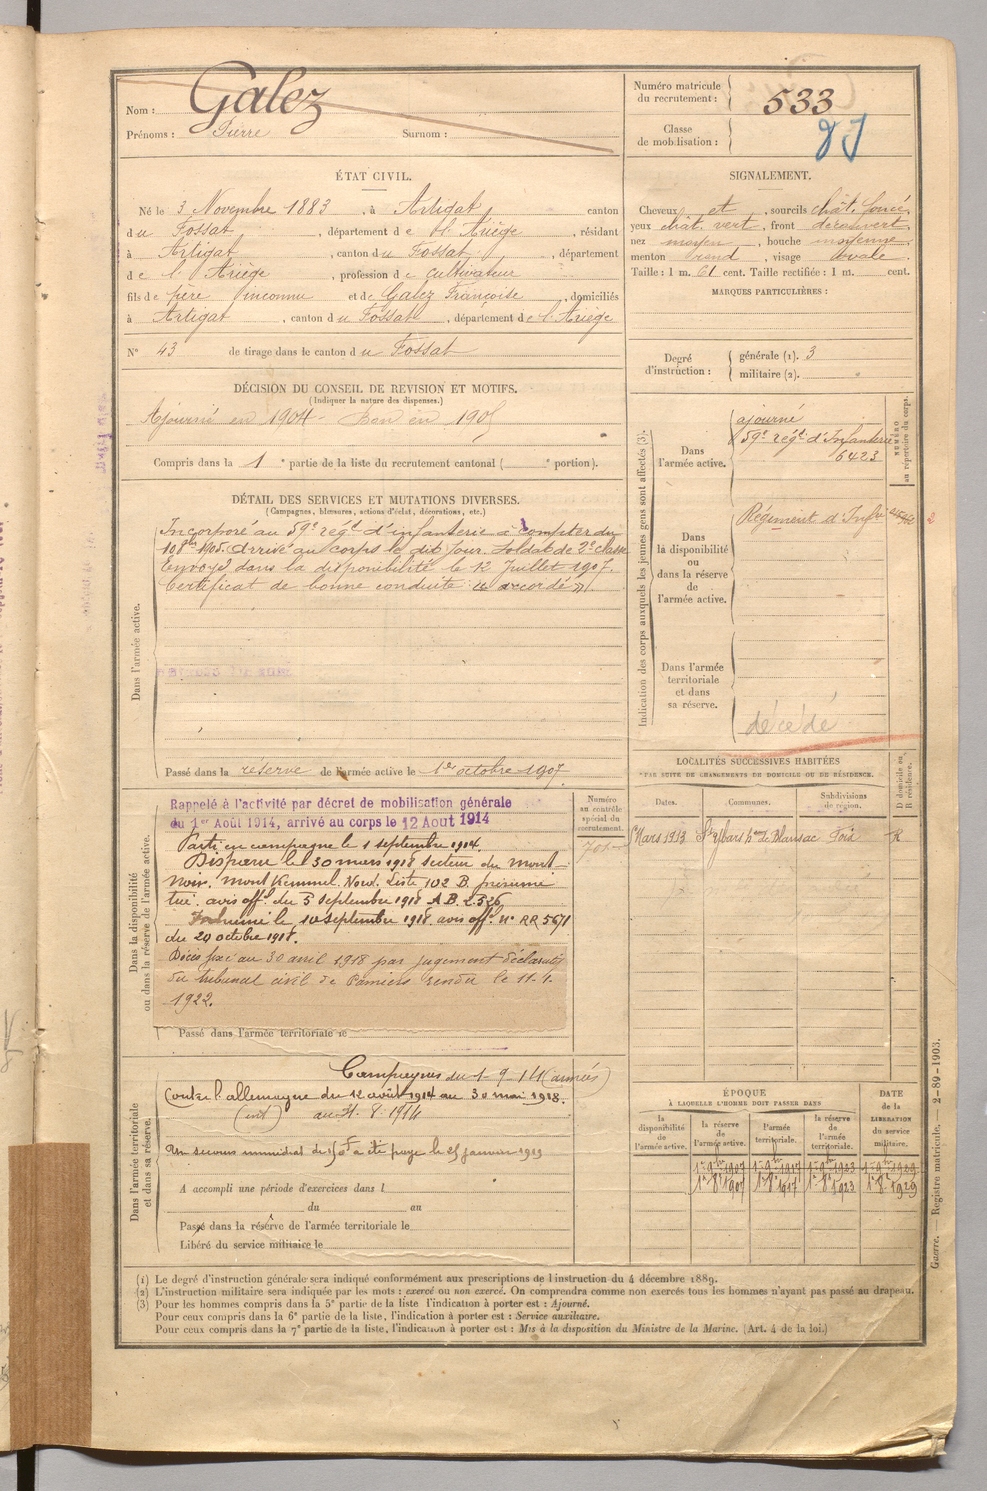 Nom : Galez
Prénoms : Pierre Surnom :
Numéro matricule du recrutement : 533
Classe de mobilisation :
ÉTAT CIVIL.
Né le 3 Novembre 1883, à Artigat, canton
du Fossat, département de l'Ariège, résidant
à Artigat, canton du Fossat, département
de l'Ariège, profession de cultivateur
fils de père inconnu et de Galez Françoise, domiciliés
à Artigat, canton du Fossat, département de l'Ariège
N° 43 de tirage dans le canton du Fossat
SIGNALEMENT.
Cheveux et, sourcils chât. foncé,
yeux chât. vert, front découvert
nez moyen, bouche moyenne,
menton rond, visage ovale.
Taille : 1 m. 61 cent. Taille rectifiée : 1 m. cent.
MARQUES PARTICULIÈRES :
Degré d'instruction : générale (1). 3
militaire (2).
DÉCISION DU CONSEIL DE REVISION ET MOTIFS.
(Indiquer la nature des dispenses.)
Ajourné en 1904 Bon en 1905
Compris dans la 1e partie de la liste du recrutement cantonal ( e portion).
DÉTAIL DES SERVICES ET MUTATIONS DIVERSES.
(Campagnes, blessures, actions d'éclat, décorations, etc.)
Dans l'armée active.
Incorporé au 59e régt d'infanterie à compter du
10 8bre 1905. Arrivé au corps le dit jour. Soldat de 2e classe
Envoyé dans la disponibilité le 12 Juillet 1907.
Certificat de bonne conduite "accordé".
Passé dans la réserve de l'armée active le 1er octobre 1907
Indication des corps auxquels les jeunes gens sont affectés (3).
NUMÉRO au répertoire du corps.
Dans l'armée active.
ajourné
59e régt d'Infanterie
6423
Dans la disponibilité ou dans la réserve de l'armée active.
Régiment d'Infrie
Dans l'armée territoriale et dans sa réserve.
décédé
Dans la disponibilité ou dans la réserve de l'armée active.
Numéro au contrôle spécial du recrutement.
Rappelé à l'activité par décret de mobilisation générale
du 1er Août 1914, arrivé au corps le 12 Aout 1914
Parti en campagne le 1 septembre 1914.
Disparu le 30 mars 1918 secteur du mont
noir. mont Kemmel. Nord. Liste 102 B. présumé
tué. avis off. du 5 septembre 1918 A.B. 2.526
Inhumé le 10 septembre 1918. avis off. n° RR 5671
du 20 octobre 1918.
Décès fixé au 30 avril 1918 par jugement déclaratif
du tribunal civil de Pamiers rendu le 11.4.
1922.
Passé dans l'armée territoriale le
LOCALITÉS SUCCESSIVES HABITÉES
PAR SUITE DE CHANGEMENTS DE DOMICILE OU DE RÉSIDENCE.
Dates. Communes. Subdivisions de région. D domicile ou R résidence.
Mars 1913 Foix R
Dans l'armée territoriale et dans sa réserve.
Campagnes du 1-9-14 (armées)
Contre l'allemagne du 12 août 1914 au 30 mai 1918.
(int) au 31.8.1914
Un secours immédiat de 150 F a été payé le 25 janvier 1919
A accompli une période d'exercices dans l
du au
Passé dans la réserve de l'armée territoriale le
Libéré du service militaire le
ÉPOQUE
À LAQUELLE L'HOMME DOIT PASSER DANS
la disponibilité de l'armée active. la réserve de l'armée active. l'armée territoriale. la réserve de l'armée territoriale.
DATE de la LIBÉRATION du service militaire.
1r 8bre 1907 1r 8bre 1917 1r 8bre 1923 1r 8bre 1929
(1) Le degré d'instruction générale sera indiqué conformément aux prescriptions de l'instruction du 4 décembre 1889.
(2) L'instruction militaire sera indiquée par les mots : exercé ou non exercé. On comprendra comme non exercés tous les hommes n'ayant pas passé au drapeau.
(3) Pour les hommes compris dans la 5e partie de la liste l'indication à porter est : Ajourné.
Pour ceux compris dans la 6e partie de la liste, l'indication à porter est : Service auxiliaire.
Pour ceux compris dans la 7e partie de la liste, l'indication à porter est : Mis à la disposition du Ministre de la Marine. (Art. 4 de la loi.)
Guerre. — Registre matricule. — 2-89-1903.